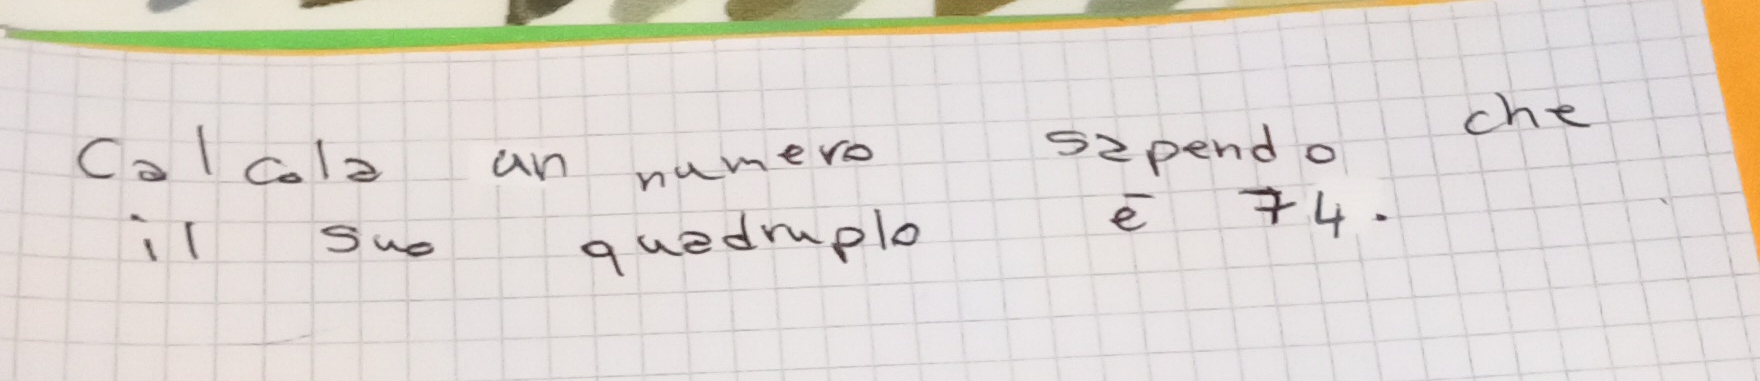 Calcola un numero sapendo che
il suo quadruplo è 74.